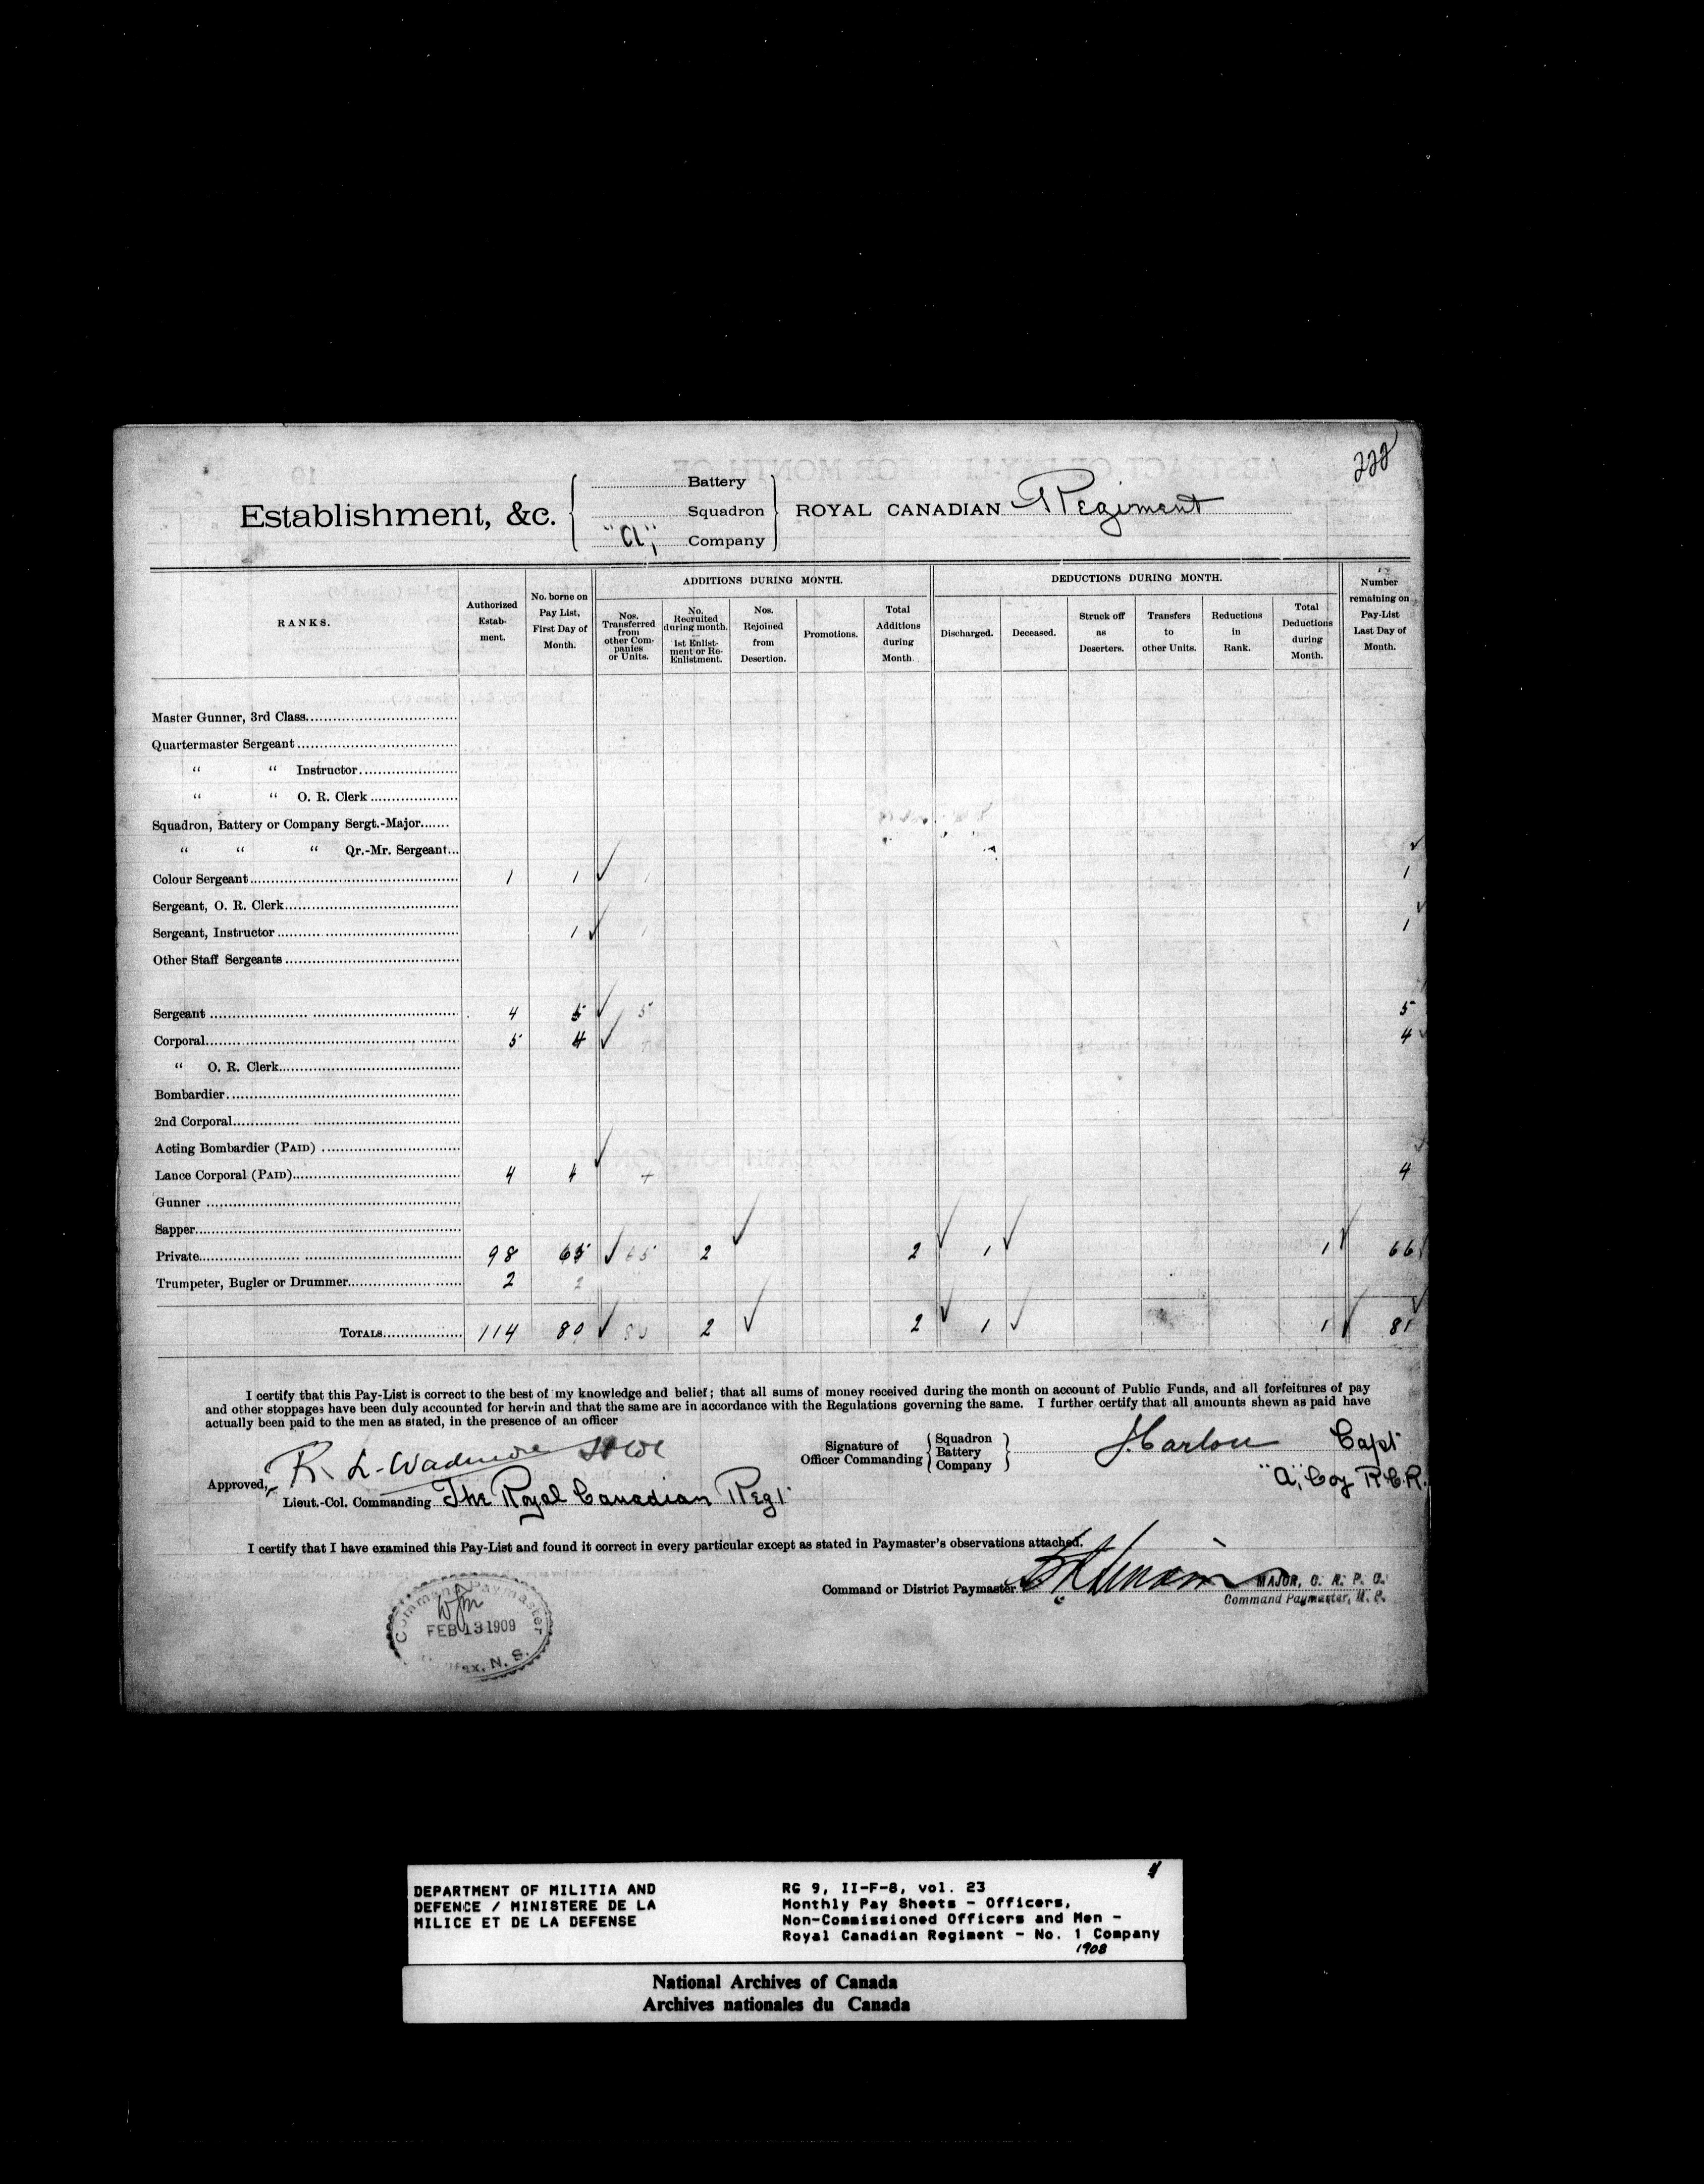 222
Establishment, &c.
Battery
Squadron
"A", Company
ROYAL CANADIAN Regiment
RANKS.
Authorized Estab- ment.
No. borne on Pay List, First Day of Month.
ADDITIONS DURING MONTH.
Nos. Transferred from other Com- panies or Units.
No. Recruited during month. 1st Enlist- ment or Re- Enlistment.
Nos. Rejoined from Desertion.
Promotions.
Total Additions during Month.
DEDUCTIONS DURING MONTH.
Discharged.
Deceased.
Struck off as Deserters.
Transfers to other Units.
Reductions in Rank.
Total Deductions during Month.
Number remaining on Pay-List Last Day of Month.
Master Gunner, 3rd Class
Quartermaster Sergeant
" " Instructor
" " O. R. Clerk
Squadron, Battery or Company Sergt.-Major
" " " Qr.-Mr. Sergeant
Colour Sergeant 1 1 1 1
Sergeant, O. R. Clerk
Sergeant, Instructor 1 1 1
Other Staff Sergeants
Sergeant 4 5 5 5
Corporal 5 4 4 4
" O. R. Clerk
Bombardier
2nd Corporal
Acting Bombardier (PAID)
Lance Corporal (PAID) 4 4 4 4
Gunner
Sapper
Private 98 65 65 2 2 1 1 66
Trumpeter, Bugler or Drummer 2 2
TOTALS 114 80 80 2 2 1 1 81
I certify that this Pay-List is correct to the best of my knowledge and belief; that all sums of money received during the month on account of Public Funds, and all forfeitures of pay
and other stoppages have been duly accounted for herein and that the same are in accordance with the Regulations governing the same. I further certify that all amounts shewn as paid have
actually been paid to the men as stated, in the presence of an officer
Signature of Officer Commanding
Squadron
Battery
Company
Capt
"A", Coy R.C.R.
Approved, R. L. Wadmore
Lieut.-Col. Commanding The Royal Canadian Regt
I certify that I have examined this Pay-List and found it correct in every particular except as stated in Paymaster's observations attached.
Command or District Paymaster
MAJOR, C. A. P. C.
Command Paymaster, M. C.
Command Paymaster
FEB 13 1909
N. S.
DEPARTMENT OF MILITIA AND
DEFENCE / MINISTERE DE LA
MILICE ET DE LA DEFENSE
RG 9, II-F-8, vol. 23
Monthly Pay Sheets - Officers,
Non-Commissioned Officers and Men -
Royal Canadian Regiment - No. 1 Company
1908
National Archives of Canada
Archives nationales du Canada